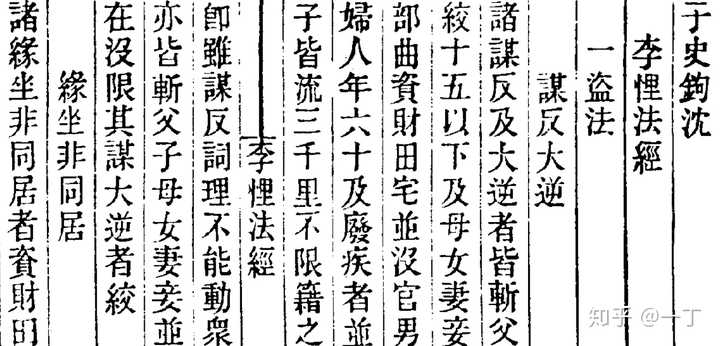 子史鉤沈
李悝法經
一盜法
謀反大逆
諸謀反及大逆者皆斬父
絞十五以下及母女妻妾
部曲資財田宅並沒官男
婦人年六十及廢疾者並
子皆流三千里不限籍之
李悝法經
卽雖謀反詞理不能動衆
亦皆斬父子母女妻妾並
在沒限其謀大逆者絞
緣坐非同居
諸緣坐非同居者資財田
知乎 @一丁